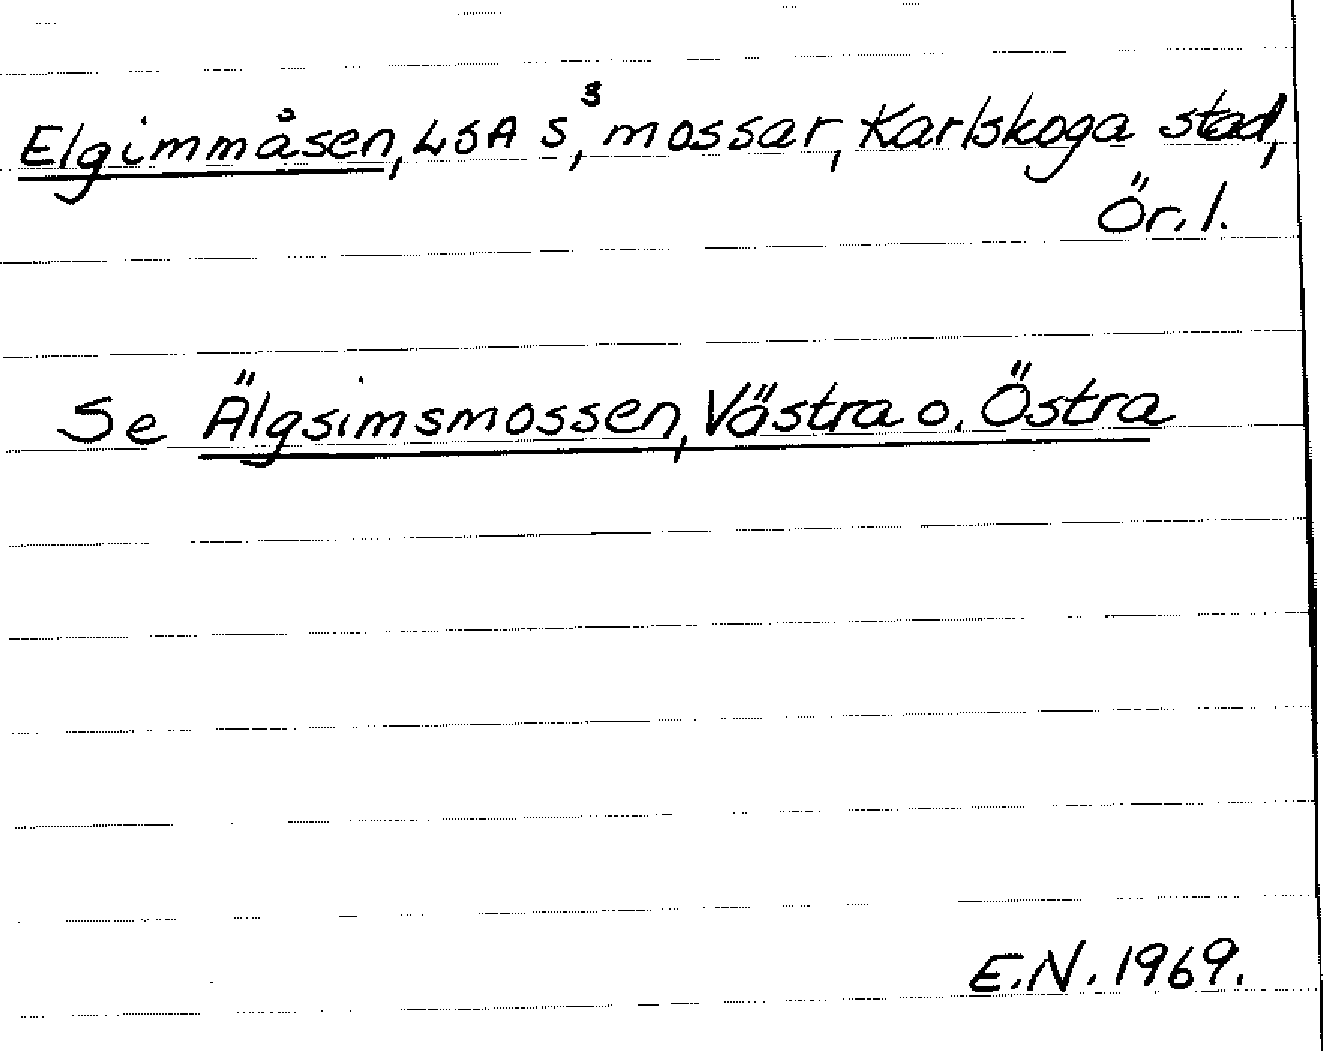 Elgimmåsen, LSA S³, mossar, Karlskoga stad,
Ör. l.
Se Älgsimsmossen, Västra o. Östra
E.N. 1969.